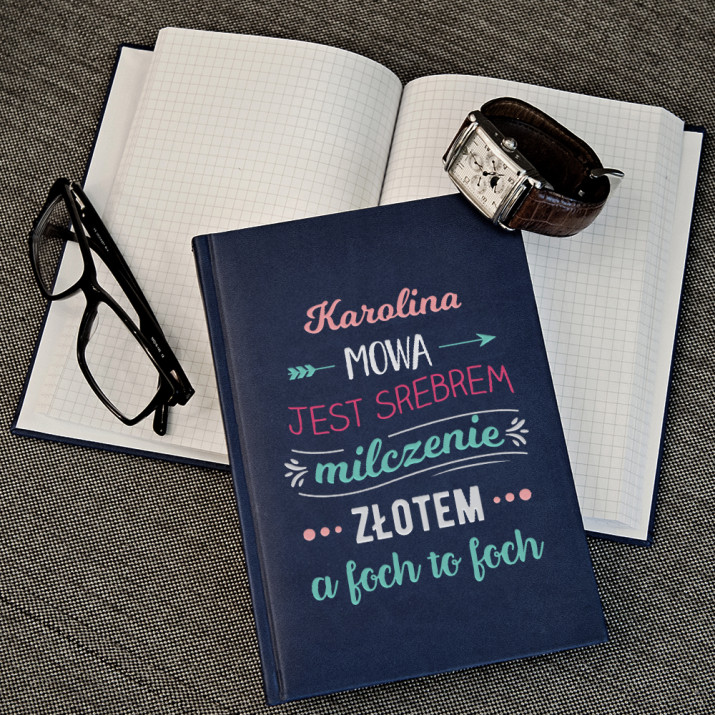 Karolina
MOWA
JEST SREBREM
milczenie
ZŁOTEM
a foch to foch